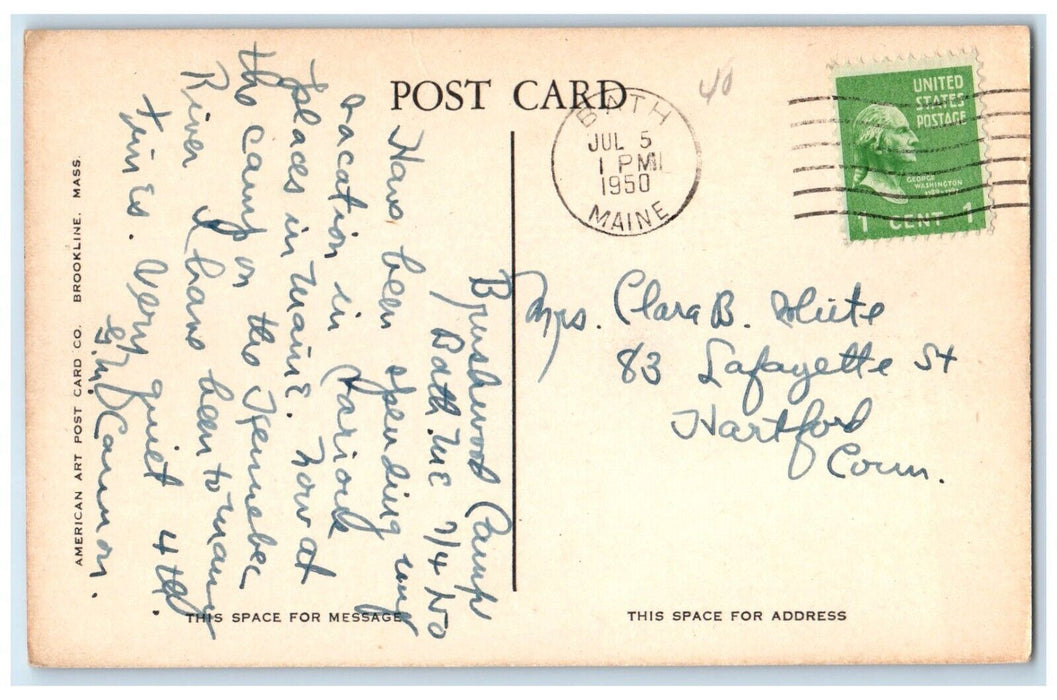 POST CARD
40
BATH
JUL 5
1 PM
1950
MAINE
UNITED
STATES
POSTAGE
GEORGE
WASHINGTON
1 CENT 1
Brushwood Camp
Bath. Me 7/4/50
Have been spending my
vacation in various
places in Maine. Now at
the camp on the Kennebec
River I have been to many
times. Very quiet 4th.
Cannon.
Mrs. Clara B. White
83 Lafayette St
Hartford
Conn.
AMERICAN ART POST CARD CO. BROOKLINE, MASS.
THIS SPACE FOR MESSAGE
THIS SPACE FOR ADDRESS